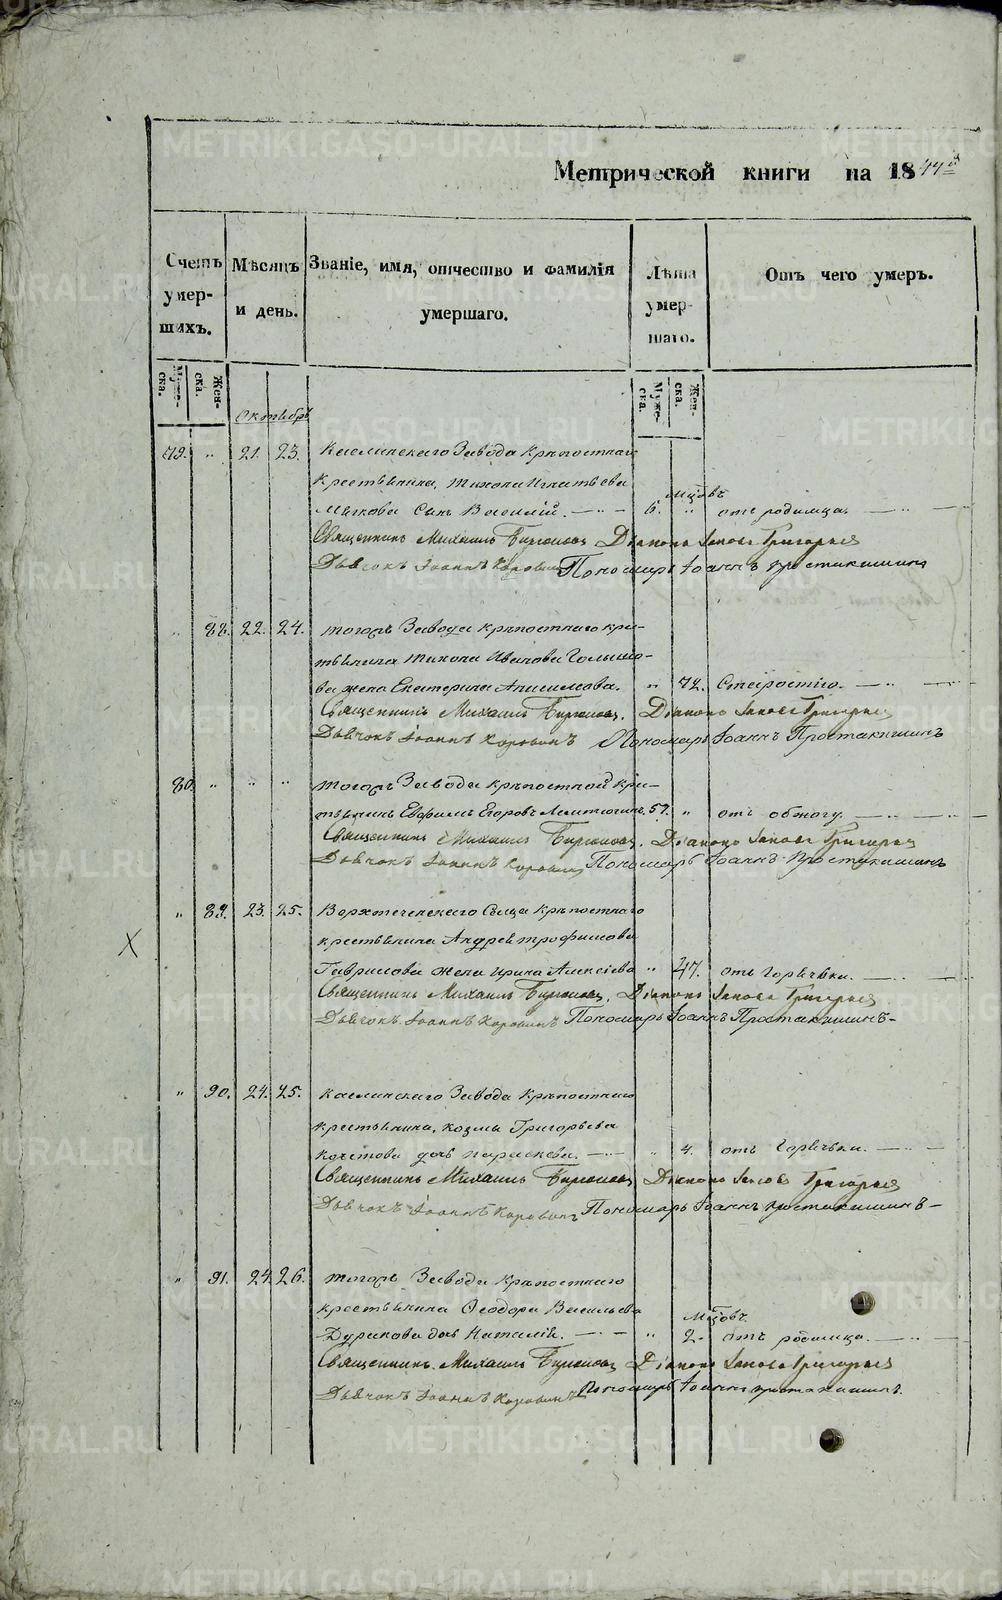 Метрической книги на 1844й
Счетъ умер-шихъ.
Мѣсяцъ и день.
Званіе, имя, отчество и фамилія умершаго.
Лѣта умер-шаго.
Отъ чего умеръ.
Муже-ска.
Жен-ска.
Муже-ска.
Жен-ска.
Октябрь
79. " 21. 23. Каслинскаго Завода Крѣпостнаго
крестьянина, Тихона Игнатьева
мѣсцовъ
Сынъ Василій. 6. " отъ родимца.
Священникъ Михаилъ Бирюковъ Діаконъ Іаковъ Григорьевъ
Дьячокъ Іоаннъ Коровинъ Пономарь Іоаннъ Простакишинъ
" 88. 22. 24. тогожъ Завода крѣпостнаго кре-
стьянина Тихона Иванова
жена Екатерина Анисимова. " 72. Старостію.
Священникъ Михаилъ Бирюковъ. Діаконъ Іаковъ Григорьевъ
Дьячокъ Іоаннъ Коровинъ Пономарь Іоаннъ Простакишинъ
80. " " " тогожъ Завода крѣпостной кре-
стьянинъ Ефимъ Егоровъ 57. " отъ обжогу.
Священникъ Михаилъ Бирюковъ. Діаконъ Іаковъ Григорьевъ
Дьячокъ Іоаннъ Коровинъ Пономарь Іоаннъ Простакишинъ
" 89. 23. 25. Верхтеченскаго Сельца Крѣпостнаго
крестьянина Андрея Трофимова
Гаврилова жена Ирина Алексѣева " 47. отъ Горячьки.
Священникъ Михаилъ Бирюковъ. Діаконъ Іаковъ Григорьевъ
Дьячокъ Іоаннъ Коровинъ Пономарь Іоаннъ Простакишинъ
" 90. 24. 25. Каслинскаго Завода Крѣпостнаго
крестьянина, Козмы Григорьева
дочь Параскева. " 4. отъ Горячьки.
Священникъ Михаилъ Бирюковъ Діаконъ Іаковъ Григорьевъ
Дьячокъ Іоаннъ Коровинъ Пономарь Іоаннъ Простакишинъ
" 91. 24. 26. тогожъ Завода Крѣпостнаго
крестьянина Ѳеодора Васильева
мѣсцовъ.
Дуракова дочь Наталія. " 2. отъ родимца.
Священникъ Михаилъ Бирюковъ Діаконъ Іаковъ Григорьевъ
Дьячокъ Іоаннъ Коровинъ Пономарь Іоаннъ Простакишинъ.
METRIKI.GASO-URAL.RU